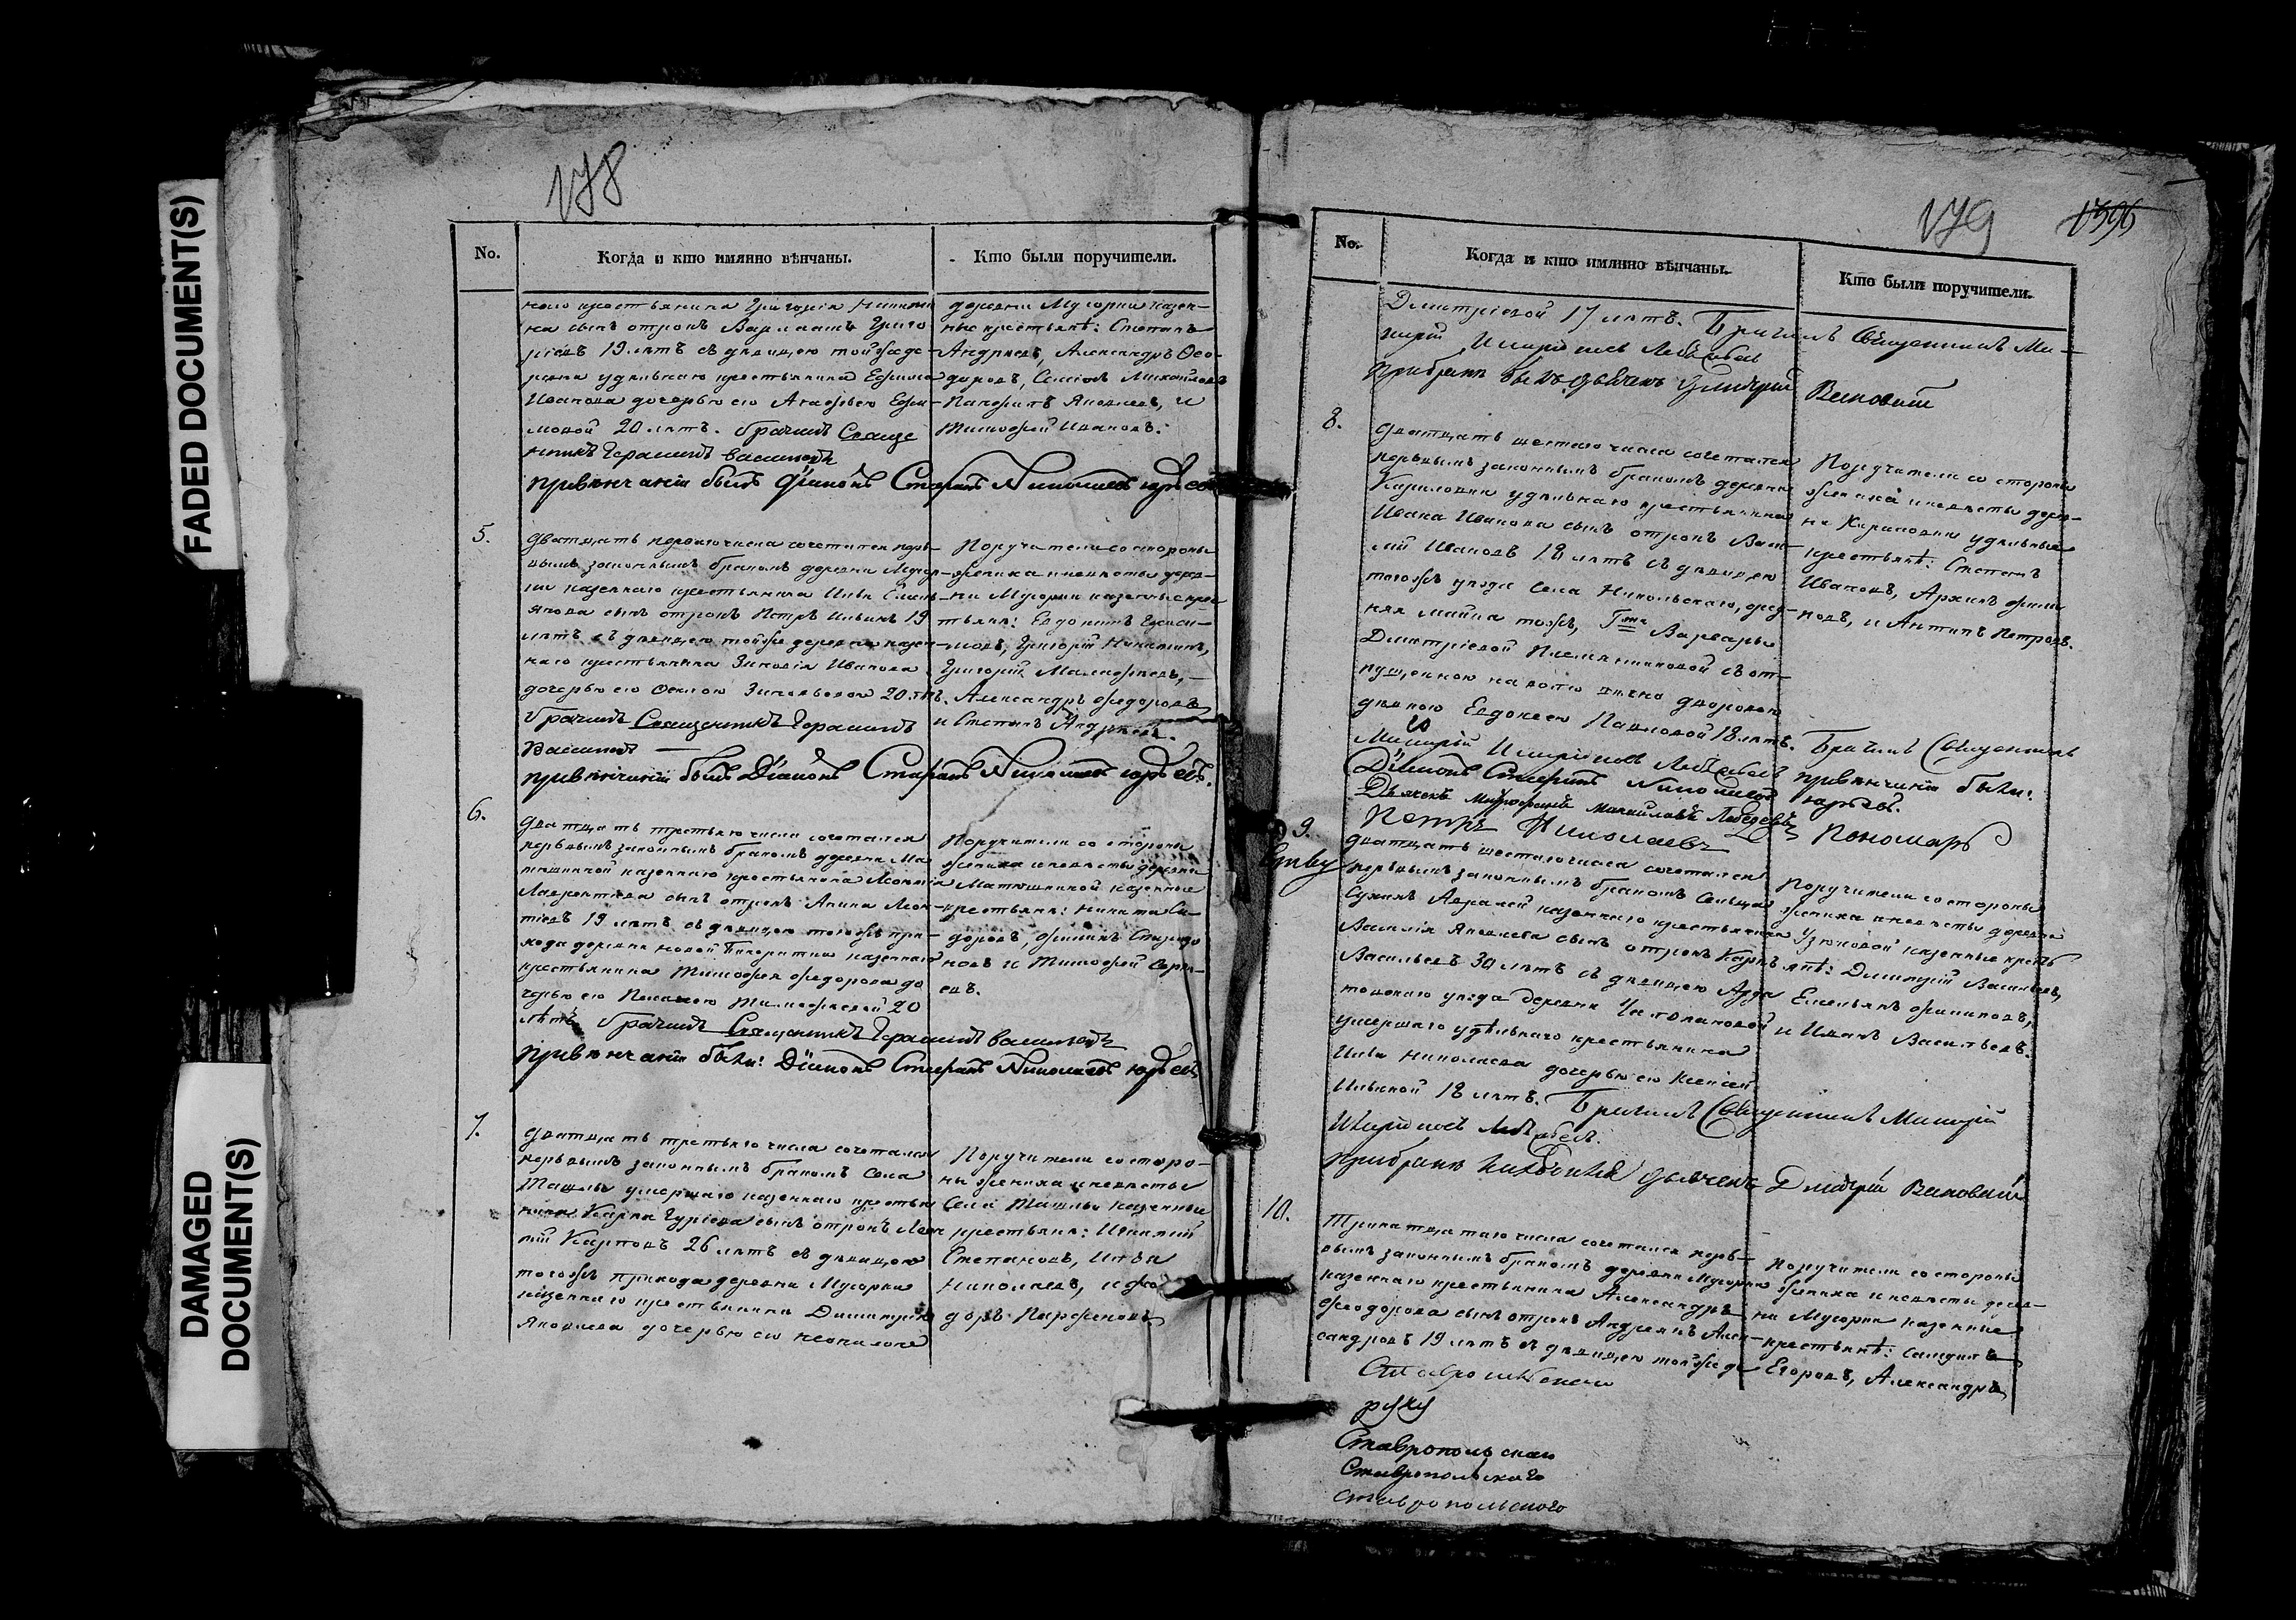 FADED DOCUMENT(S)
DAMAGED
DOCUMENT(S)
178
No.
Когда и кто имянно вѣнчаны.
Кто были поручители.
наго крестьянина Григорія Никити
на сынъ отрокъ Варлаамъ Григо
рьевъ 19 лѣтъ съ дѣвицею той же де
ревни удѣльнаго крестьянина Ефима
Иванова дочерью его Агафьею Ефи-
мовой 20 лѣтъ. брачилъ Священ
никъ Герасимъ Васильевъ
привѣнчаніи былъ Діаконъ Стефанъ Николаевъ Юрьевъ
деревни Мусорки казен-
ные крестьянѣ: Степанъ
Андреевъ, Александръ Ѳео-
доровъ, Семіонъ Михайловъ
Панфилъ Яковлевъ, и
Тимофей Ивановъ.
5.
Дватцать перваго числа сочетался пер-
вымъ законнымъ бракомъ деревни Мусор-
ки казеннаго крестьянина Ильи Емель-
янова сынъ отрокъ Петръ Ильинъ 19
лѣтъ съ дѣвицею той же деревни казен-
наго крестьянина Зиновія Иванова
дочерью его Ѳеклою Зиновьевой 20 лѣтъ.
брачилъ Священникъ Герасимъ
Васильевъ
привѣнчаніи былъ Діаконъ Стефанъ Николаевъ Юрьевъ.
Поручители со стороны
жениха и невѣсты дерев-
ни Мусорки казенные крес
тьяне: Евдокимъ
Григорій Никитинъ,
Григорій
Александръ Федоровъ
и Степанъ Андреевъ.
6.
Дватцать третьяго числа сочетался
первымъ законнымъ бракомъ деревни Ма
тюшкиной казеннаго крестьянина Леонтія
Лаврентьева сынъ отрокъ Аника Леон-
тьевъ 19 лѣтъ съ дѣвицею того же при-
хода деревни новой казеннаго
крестьянина Тимофея Федорова до
черью его Пелагеею Тимофеевой 20
лѣтъ брачилъ Священникъ Герасимъ Васильевъ
привѣнчаніи были: Діаконъ Стефанъ Николаевъ Юрьевъ
Поручители со стороны
жениха и невѣсты деревни
Матюшкиной казенные
крестьяне: Никита Си-
доровъ, Филипъ Спиридо
новъ и Тимофей Серге-
евъ.
7.
Дватцать третьяго числа сочетался
первымъ законнымъ бракомъ Села
Ташлы умершаго казеннаго крестья
нина Карпа Гурьева сынъ отрокъ Леон
тій Карповъ 26 лѣтъ съ дѣвицею
того же прихода деревни Мусорки
казеннаго крестьянина Димитрія
Яковлева дочерью его Неонилою
Поручители со сторо-
ны жениха и невѣсты
Села Ташлы казенные
крестьяне: Игнатий
Степановъ, Илья
Николаевъ, и Фео
доръ Парфеновъ
179
1396
No.
Когда и кто имянно вѣнчаны.
Кто были поручители.
Дмитріевой 17 лѣтъ. Брачилъ Священникъ Ми-
Лебедевъ
прибракѣ былъ дьячекъ Дмитрій
8.
Дватцать шестаго числа сочетался
первымъ законнымъ бракомъ деревни
Кириловки удѣльнаго крестьянина
Ивана Иванова сынъ отрокъ Васи-
лій Ивановъ 18 лѣтъ съ дѣвицею
того жъ уѣзда Села Никольскаго, сред-
няя майна тожъ, Гжи Варвары
Дмитріевой Племянниковой съ от-
пущенною на волю вѣчно дворовою
дѣвкою Евдокеею Павловой 18 лѣтъ. Брачилъ Священникъ
Лебедевъ привѣнчаніи были:
Діаконъ Стефанъ Николаевъ Юрьевъ.
Дьячекъ Митрофаній Михайловъ Лебедевъ
Петръ Николаевъ Пономарь
Поручители со стороны
жениха и невѣсты дерев-
ни Кириловки удѣльные
крестьянѣ: Степанъ
Ивановъ, Архипъ Фили
повъ, и Антипъ Петровъ.
9.
дватцать шестаго числа сочетался
первымъ законнымъ бракомъ Сельца
Сухихъ Авралей казеннаго крестьянина
Василія Яковлева сынъ отрокъ Карпъ
Васильевъ 30 лѣтъ съ дѣвицею Арда
товскаго уѣзда деревни
умершаго удѣльнаго крестьянина
Ильи Николаева дочерью его Ксенией
Ильиной 18 лѣтъ. Брачилъ Священникъ
Лебедевъ.
прибракѣ дьячекъ Дмитрій
Поручители со стороны
жениха и невѣсты деревни
Узюковой казенные кресть
янѣ: Димитрій Васильевъ,
Емельянъ Филиповъ,
и Иванъ Васильевъ.
10.
Тритцатаго числа сочетался пер-
вымъ законнымъ бракомъ деревни Мусорки
казеннаго крестьянина Александра
Феодорова сынъ отрокъ Андреянъ Алек-
сандровъ 19 лѣтъ съ дѣвицею той же де
Поручители со стороны
жениха и невѣсты дерев-
ни Мусорки казенные
крестьянѣ: Самуилъ
Егоровъ, Александръ
руку
Ставропольскаго
Ставропольскаго
ставропольского